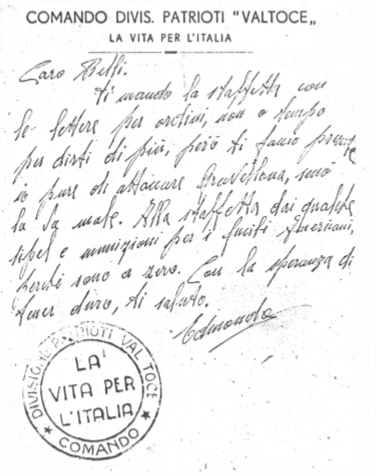 COMANDO DIVIS. PATRIOTI "VALTOCE„
LA VITA PER L'ITALIA
Caro Belti.
ti mando la staffetta con
le lettere per ordini, non o tempo
per dirti di più, però ti faccio
io pure di attaccare Gravellona, sinò
la va male. Alla staffetta dai qualche
sipel e munizioni per i fucili Americani,
perché sono a zero. Con la speranza di
saluto.
Edmondo
DIVISIONE PATRIOTI VAL TOCE
LA'
VITA PER
L'ITALIA
★ COMANDO ★